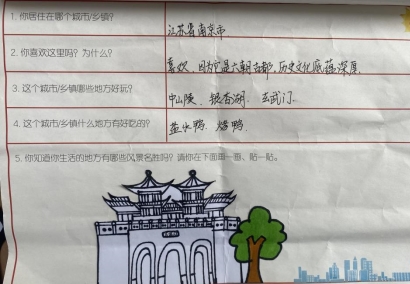 1. 你居住在哪个城市/乡镇?
江苏省南京市
2. 你喜欢这里吗? 为什么?
喜欢、因为它是六朝古都,历史文化底蕴深厚
3. 这个城市/乡镇哪些地方好玩?
中山陵、银杏湖、玄武门、
4. 这个城市/乡镇什么地方有好吃的?
盐水鸭、烤鸭、
5. 你知道你生活的地方有哪些风景名胜吗? 请你在下面画一画、贴一贴。